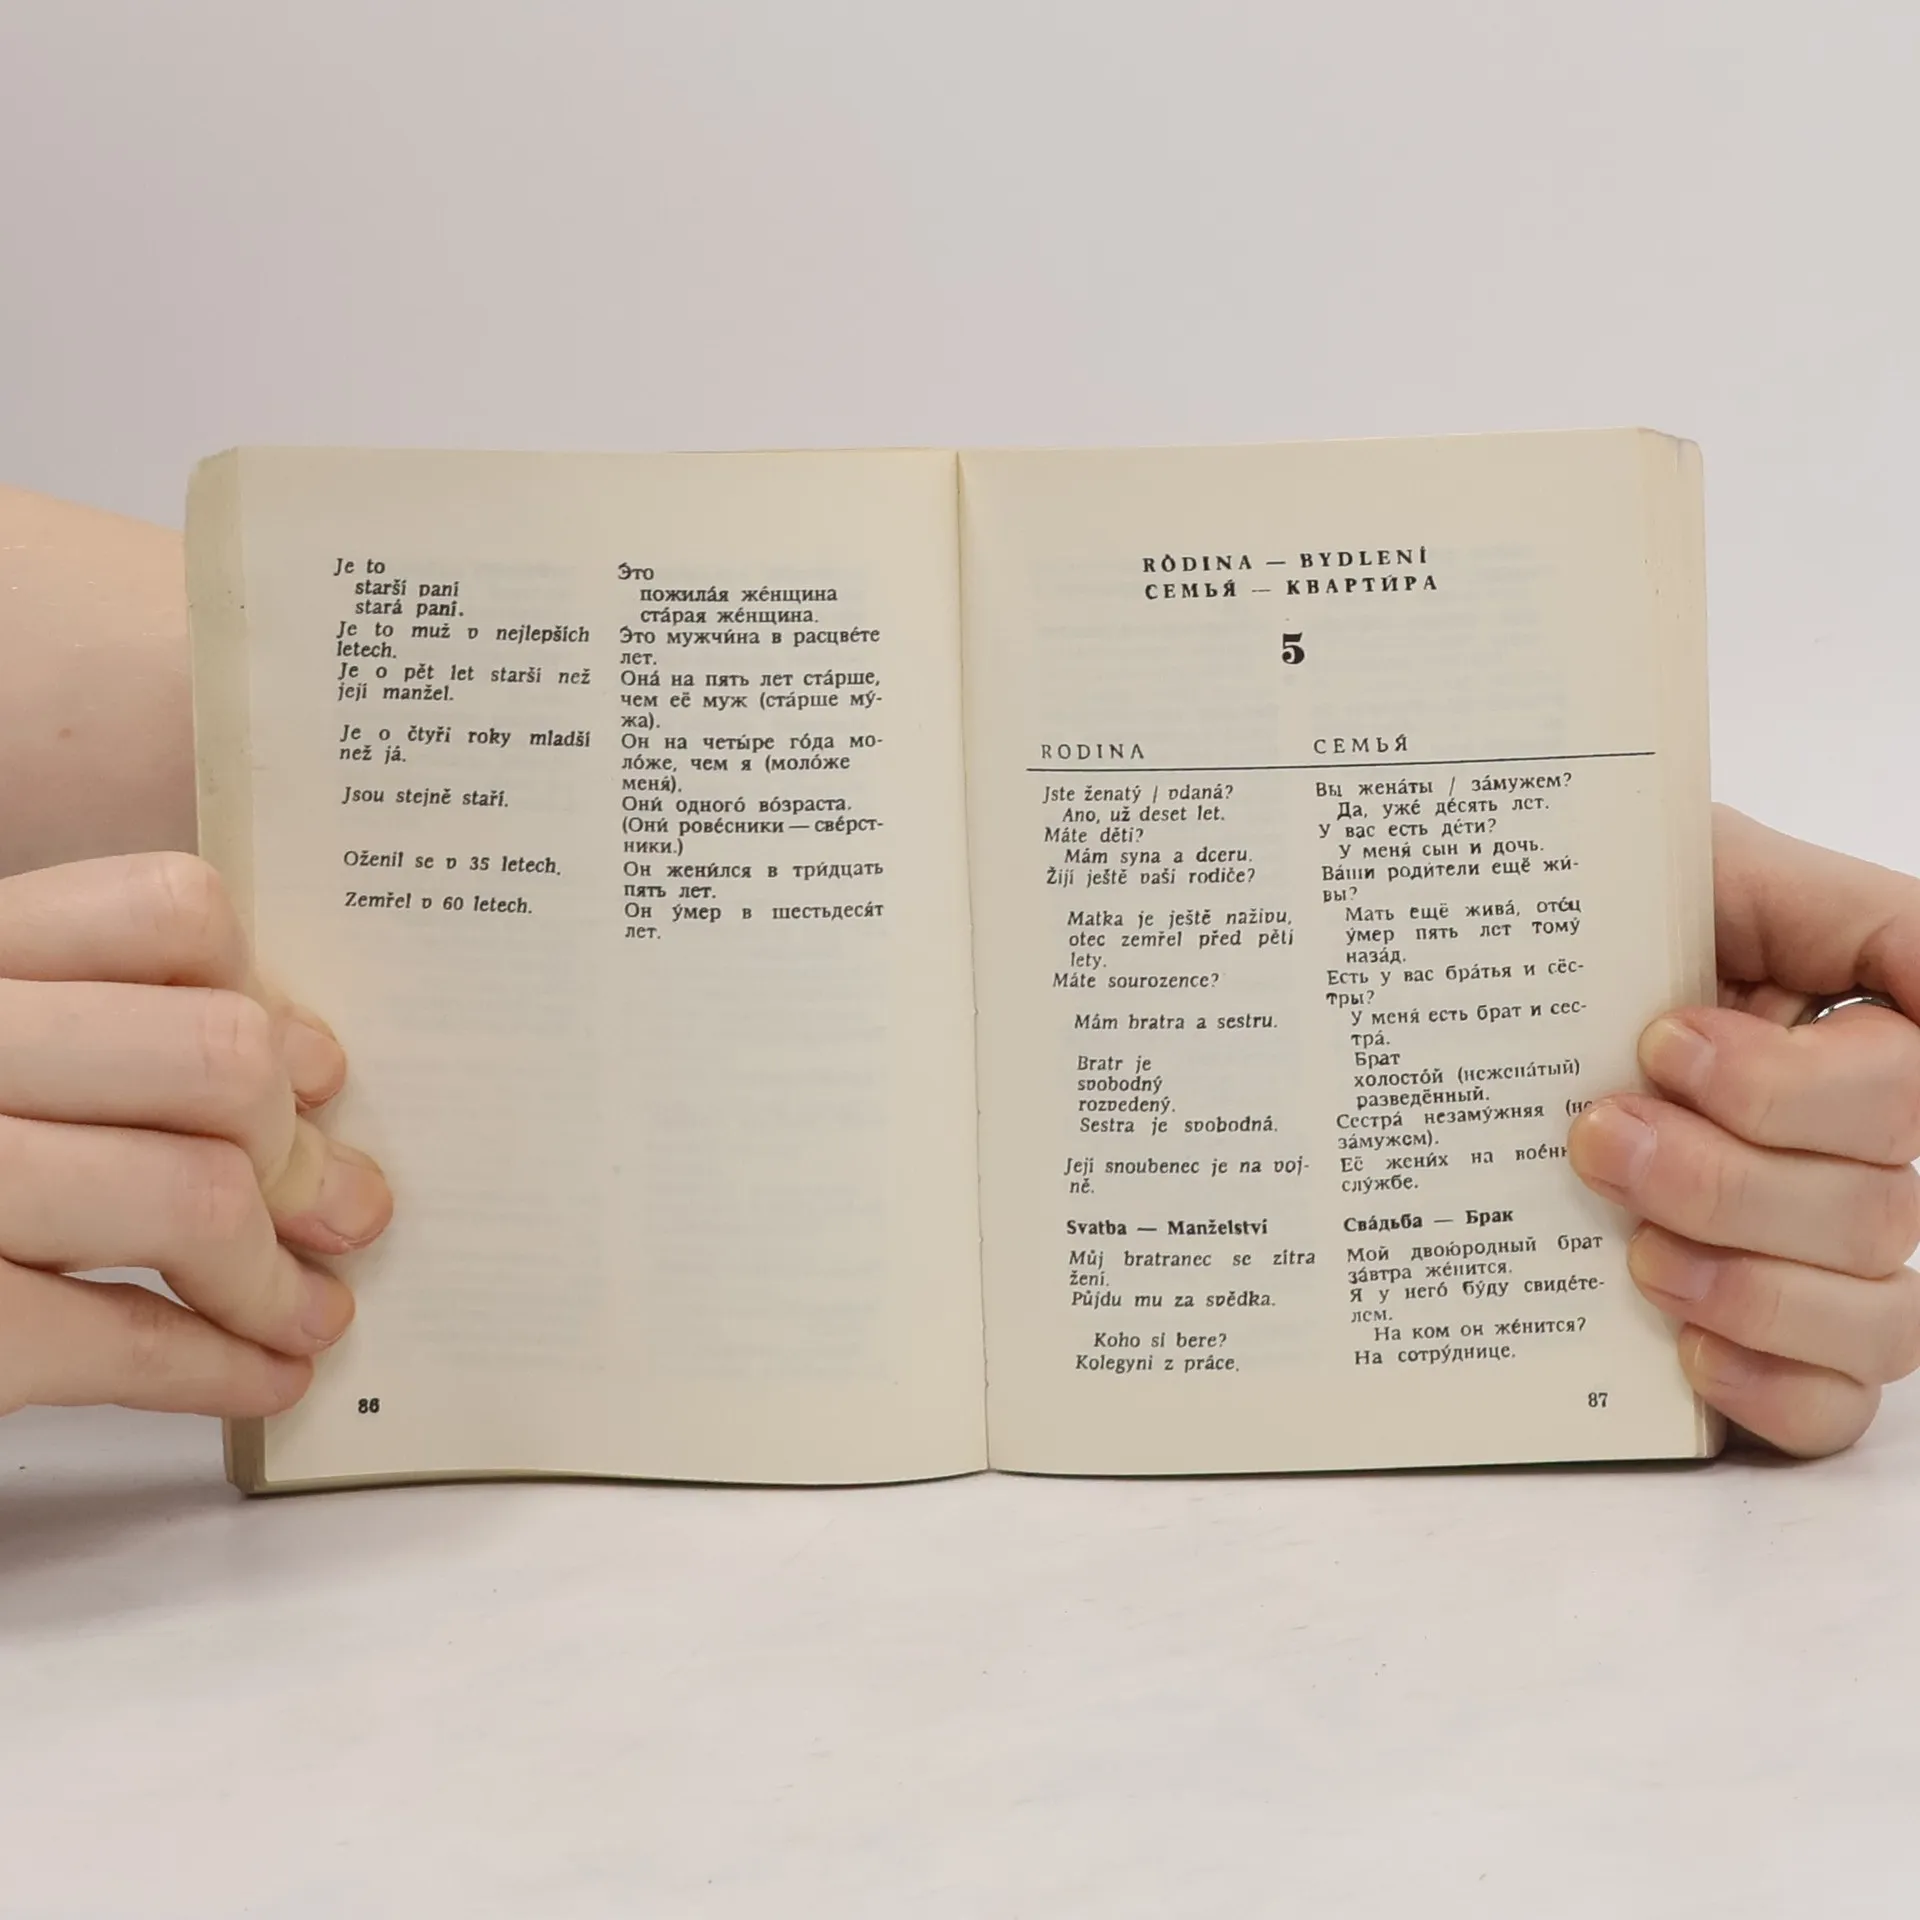 Je to
starší paní
stará paní.
Je to muž v nejlepších
letech.
Je o pět let starší než
její manžel.
Je o čtyři roky mladší
než já.
Jsou stejně staří.
Oženil se v 35 letech.
Zemřel v 60 letech.
Э́то
пожила́я же́нщина
ста́рая же́нщина.
Э́то мужчи́на в расцве́те
лет.
Она́ на пять лет ста́рше,
чем её муж (ста́рше му́-
жа).
Он на четы́ре го́да мо-
ло́же, чем я (моло́же
меня́).
Они́ одного́ во́зраста.
(Они́ рове́сники — све́рст-
ники.)
Он жени́лся в три́дцать
пять лет.
Он у́мер в шестьдеся́т
лет.
86
RODINA — BYDLENÍ
СЕМЬЯ́ — КВАРТИ́РА
5
RODINA
СЕМЬЯ́
Jste ženatý / vdaná?
Ano, už deset let.
Máte děti?
Mám syna a dceru.
Žijí ještě vaši rodiče?
Matka je ještě naživu,
otec zemřel před pěti
lety.
Máte sourozence?
Mám bratra a sestru.
Bratr je
svobodný
rozvedený.
Sestra je svobodná.
Její snoubenec je na voj-
ně.
Svatba — Manželství
Můj bratranec se zítra
žení.
Půjdu mu za svědka.
Koho si bere?
Kolegyni z práce.
Вы жена́ты / за́мужем?
Да, уже́ де́сять лет.
У вас есть де́ти?
У меня́ сын и дочь.
Ва́ши роди́тели ещё жи́-
вы?
Мать ещё жива́, оте́ц
у́мер пять лет тому́
наза́д.
Есть у вас бра́тья и сёс-
тры?
У меня́ есть брат и сес-
тра́.
Брат
холосто́й (нежена́тый)
разведённый.
Сестра́ незаму́жняя (не
за́мужем).
Её жени́х на
слу́жбе.
Сва́дьба — Брак
Мой двою́родный брат
за́втра же́нится.
Я у него́ бу́ду свиде́те-
лем.
На ком он же́нится?
На сотру́днице.
87